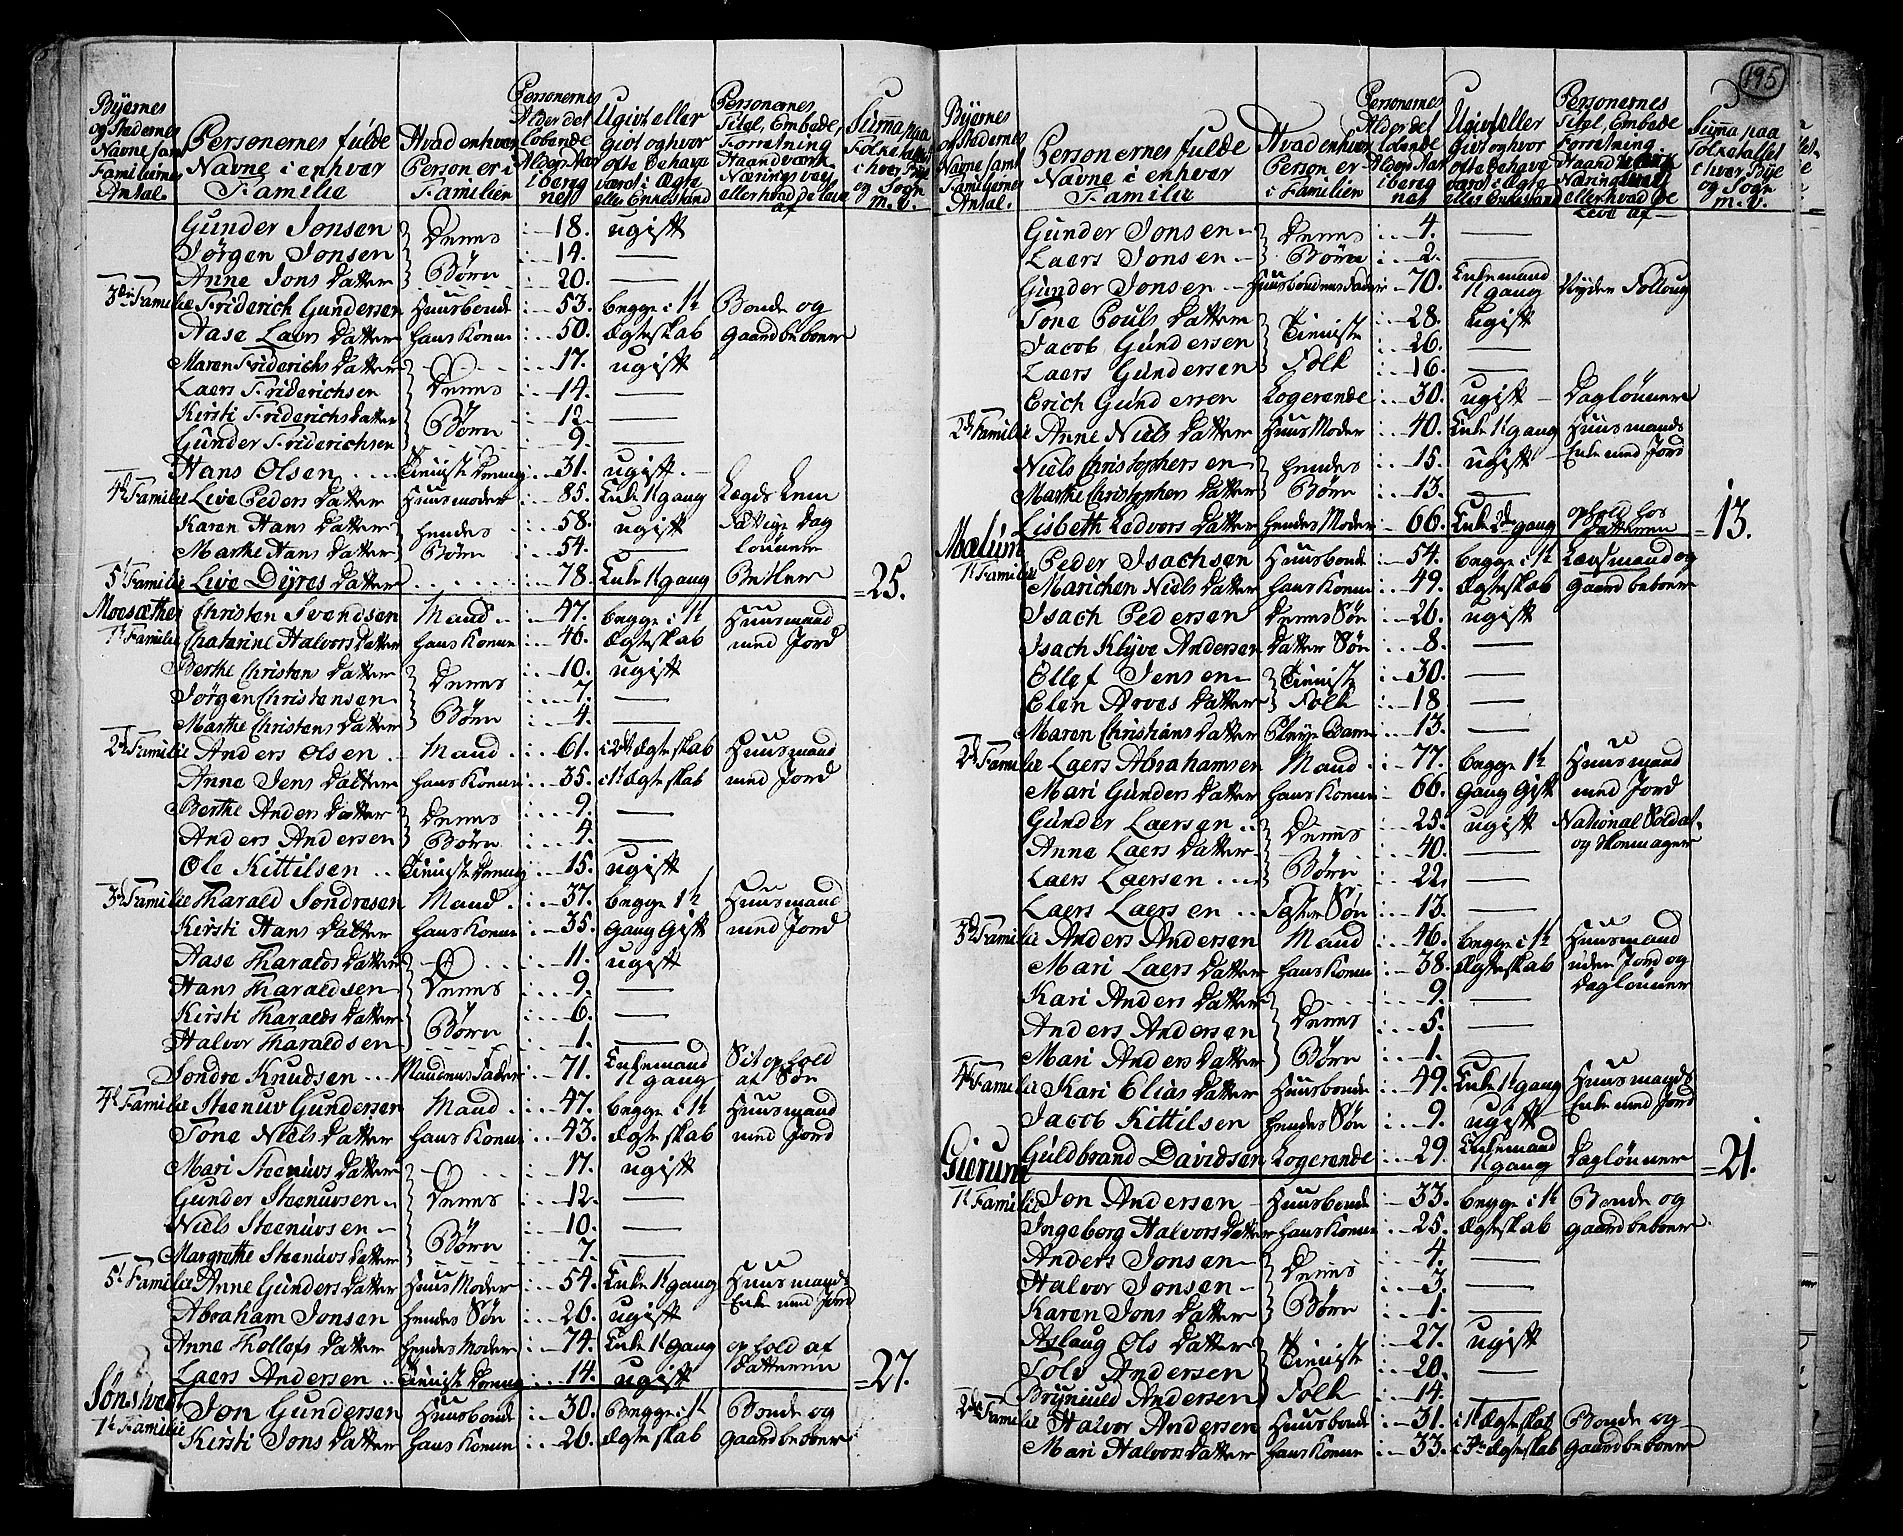 195
Byernes og Stedernes Navne samt Familiernes Antal.
Personernes fulde Navne i enhver Familie
Hvad enhver Person er i Familien
Personernes Alder det løbende Alders Aar iberegnet
Ugivt eller givt og hvor ofte de have været i Ægte eller Enkestand
Personernes Titel, Embede, Forretning Haandværk Næringsvey eller hvad de leve af
Summa paa Folketallet i hver Bye og Sogn m. v.
Gunder Jonsen } Deres 18. ugift
Jørgen Jonsen } Børn 14. —
Anne Jons Datter 20. —
3de Familie Friderich Gundersen Huusbonde 53. begge i 1t Bonde og
Aase Laers Datter hans Konne 50. Ægteskab gaardbeboer
Maren Friderichs Datter 17. ugift
Laers Friderichsen } Deres 14. —
Kirsti Friderichs Datter } Børn 12. —
Gunder Friderichsen 9. —
Hans Olsen Tieniste Dreng 31. ugift
4de Familie Live Peders Datter Huusmoder 85. Enke 1t gang Lægds Lem
Karen Hans Datter hendes 58. ugift Fattige Dag
Marthe Hans Datter Børn 54. — lønner
5t Familie Live Dyres Datter 78. Enke 1t gang Betler = 25.
Moesæther Christen Svendsen Mand 47. begge i 1t Huusmand
1t Familie Chatarine Halvors Datter hans Konne 46. Ægteskab med Jord
Berthe Christens Datter } Deres 10. ugift
Jørgen Christensen 7. —
Marthe Christens Datter } Børn 4. —
2de Familie Anders Olsen Mand 61. i 2de Ægteskab Huusmand
Anne Jens Datter hans Konne 35. i 1t Ægteskab med Jord
Berthe Anders Datter } Deres 9. —
Anders Andersen } Børn 4. —
Ole Kittilsen Tieniste Dreng 15. ugift
3de Familie Tharald Sondresen Mand 37. begge 1t Huusmand
Kirsti Hans Datter hans Konne 35. Gang Gift med Jord
Aase Tharalds Datter 11. ugift
Hans Tharaldsen } Deres 9. —
Kirsti Tharalds Datter } Børn 6. —
Halvor Tharaldsen 1. —
Sondre Knudsen Mandens Fader 71. Enkemand 1t gang Sit ophold af Søn
4de Familie Steenuv Gundersen Mand 47. begge i 1t Huusmand
Tone Niels Datter hans Konne 43. Ægteskab med Jord
Mari Steenuvs Datter 17. ugift
Gunder Steenuvsen } Deres 12. —
Niels Steenuvsen } Børn 10. —
Margrethe Steenuvs Datter 7. —
5t Familie Anne Gunders Datter Huus Moder 54. Enke 1t gang Huusmands Enke med Jord
Abraham Jonsen hendes Søn 26. ugift
Anne Thollefs Datter hendes Moder 74. Enke 1t gang ophold af Datteren
Laers Andersen Tieniste Dreng 14. ugift = 27.
Jon Gundersen Huusbonde 30. Begge i 1t Bonde og
1t Familie Kirsti Jons Datter hans Konne 26. Ægteskab gaardbeboer
Byernes og Stedernes Navne samt Familiernes Antal.
Personernes fulde Navne i enhver Familie
Hvad enhver Person er i Familien
Personernes Alder det løbende Alders Aar iberegnet
Ugivt eller givt og hvor ofte de have været i Ægte eller Enkestand
Personernes Titel, Embede Forretning Haandværk Næringsvey eller hvad de leve af
Summa paa Folketallet i hver Bye og Sogn m. v.
Gunder Jonsen } Deres 4. —
Laers Jonsen } Børn 2. —
Gunder Jonsen Huusbondens Fader 70. Enkemand 1t gang Nyder Follaug
Tone Pouls Datter } Tieniste 28. ugift
Jacob Gundersen 26. —
Laers Gundersen } Folk 16. —
Erich Gundersen Logerende 30. ugift Daglønner
2de Familie Anne Niels Datter Huus Moder 40. Enke 1t gang Huusmands
Niels Christophersen hendes 15. ugift Enke med Jord
Marthe Christophers Datter Børn 13. —
Lisbeth Ledvors Datter hendes Moder 66. Enke 2de gang ophold hos Datteren = 13.
Mælum Peder Isachsen Huusbonde 54. begge i 1t Lensmand og
1t Familie Marichen Niels Datter hans Konne 49. Ægteskab gaardbeboer
Isach Pedersen Deres Søn 26. ugift
Isach Klyve Andersen Datter Søn 8. —
Ellef Jensen } Tieniste 30. —
Elen Arves Datter } Folk 18 —
Maren Christians Datter Pleye Barn 13. —
2de Familie Laers Abrahamsen Mand 77. begge 1t Huusmand
Mari Gunders Datter hans Konne 66. Gang Gift med Jord
Gunder Laersen } Deres 25. ugift National Soldat
Anne Laers Datter 40. — og Skomager
Laers Laersen } Børn 22. —
Laers Laersen Søn 13. —
3de Familie Anders Andersen Mand 46. begge i 1t Huusmand
Mari Laers Datter hans Konne 38. Ægteskab uden Jord og
Kari Anders Datter 9. — Daglønner
Anders Andersen } Deres 5. —
Mari Anders Datter } Børn 1. —
4de Familie Kari Elias Datter Huusbonde 49. Enke 1t gang Huusmands
Jacob Kittilsen hendes Søn 9. ugift Enke med Jord
Guldbrand Davidsen Logerende 29. Enkemand 1t gang Daglønner = 21.
Gierum
1t Familie Jon Andersen Huusbonde 33. begge i 1t Bonde og
Ingeborg Halvors Datter hans Konne 25. Ægteskab gaardbeboer
Anders Jonsen 4. —
Halvor Jonsen } Deres 3. —
Karen Jons Datter } Børn 1. —
Aslaug Ols Datter 27. ugift
Solv Andersen } Tieniste 20. —
Bryniuld Andersen } Folk 14. —
2de Familie Halvor Andersen Huusbonde 31. i 1t Ægteskab Bonde og
Mari Halvors Datter hans Konne 33. i 3de Ægteskab gaardbeboer